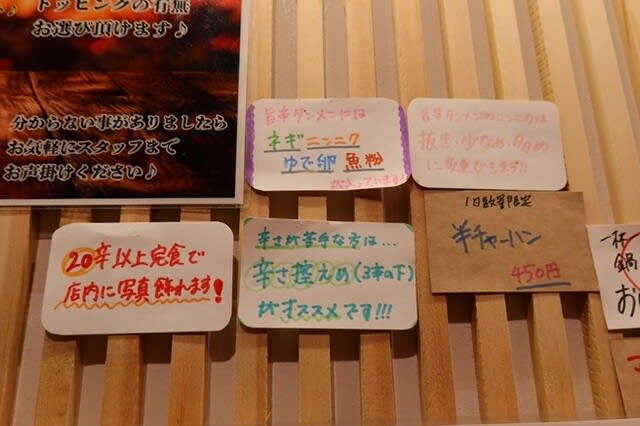 トッピングの有無
お選び頂けます♪
分からない事がありましたら
お気軽にスタッフまで
お声掛けください♪
旨辛タンメンには
ネギ ニンニク
ゆで卵 魚粉
が入っています!
旨辛タンメンのニンニクは
抜き・少なめ・多め
に変更できます!!
1日数量限定
半チャーハン
450円
20辛以上完食で
店内に写真飾れます!
辛さが苦手な方は…
辛さ控えめ(3辛の下)
がオススメです!!!
一杯
鍋
お